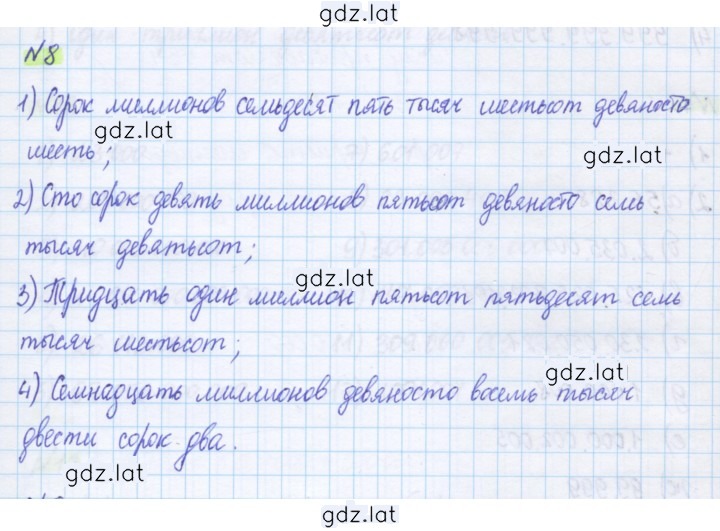 gdz.lat
№8
1) Сорок миллионов семьдесят пять тысяч шестьсот девяносто
gdz.lat
шесть;
gdz.lat
2) Сто сорок девять миллионов пятьсот девяносто семь
тысяч девятьсот;
gdz.lat
3) Тридцать один миллион пятьсот пятьдесят семь
тысяч шестьсот;
gdz.lat
4) Семнадцать миллионов девяносто восемь тысяч
двести сорок два.
gdz.lat
gdz.lat